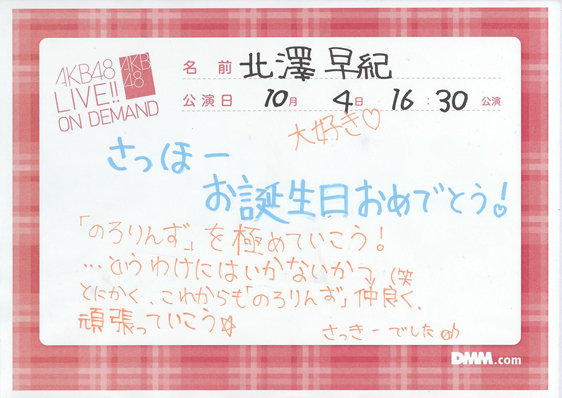 AKB48
LIVE!!
ON DEMAND
AKB
48
名前 北澤早紀
公演日 10月 4日 16:30 公演
大好き♡
さっほー
お誕生日おめでとう!
「のろりんず」を極めていこう!
…というわけにはいかないかっ (笑
とにかく、これからも「のろりんず」仲良く、
頑張っていこう☆
さっきーでした
DMM.com